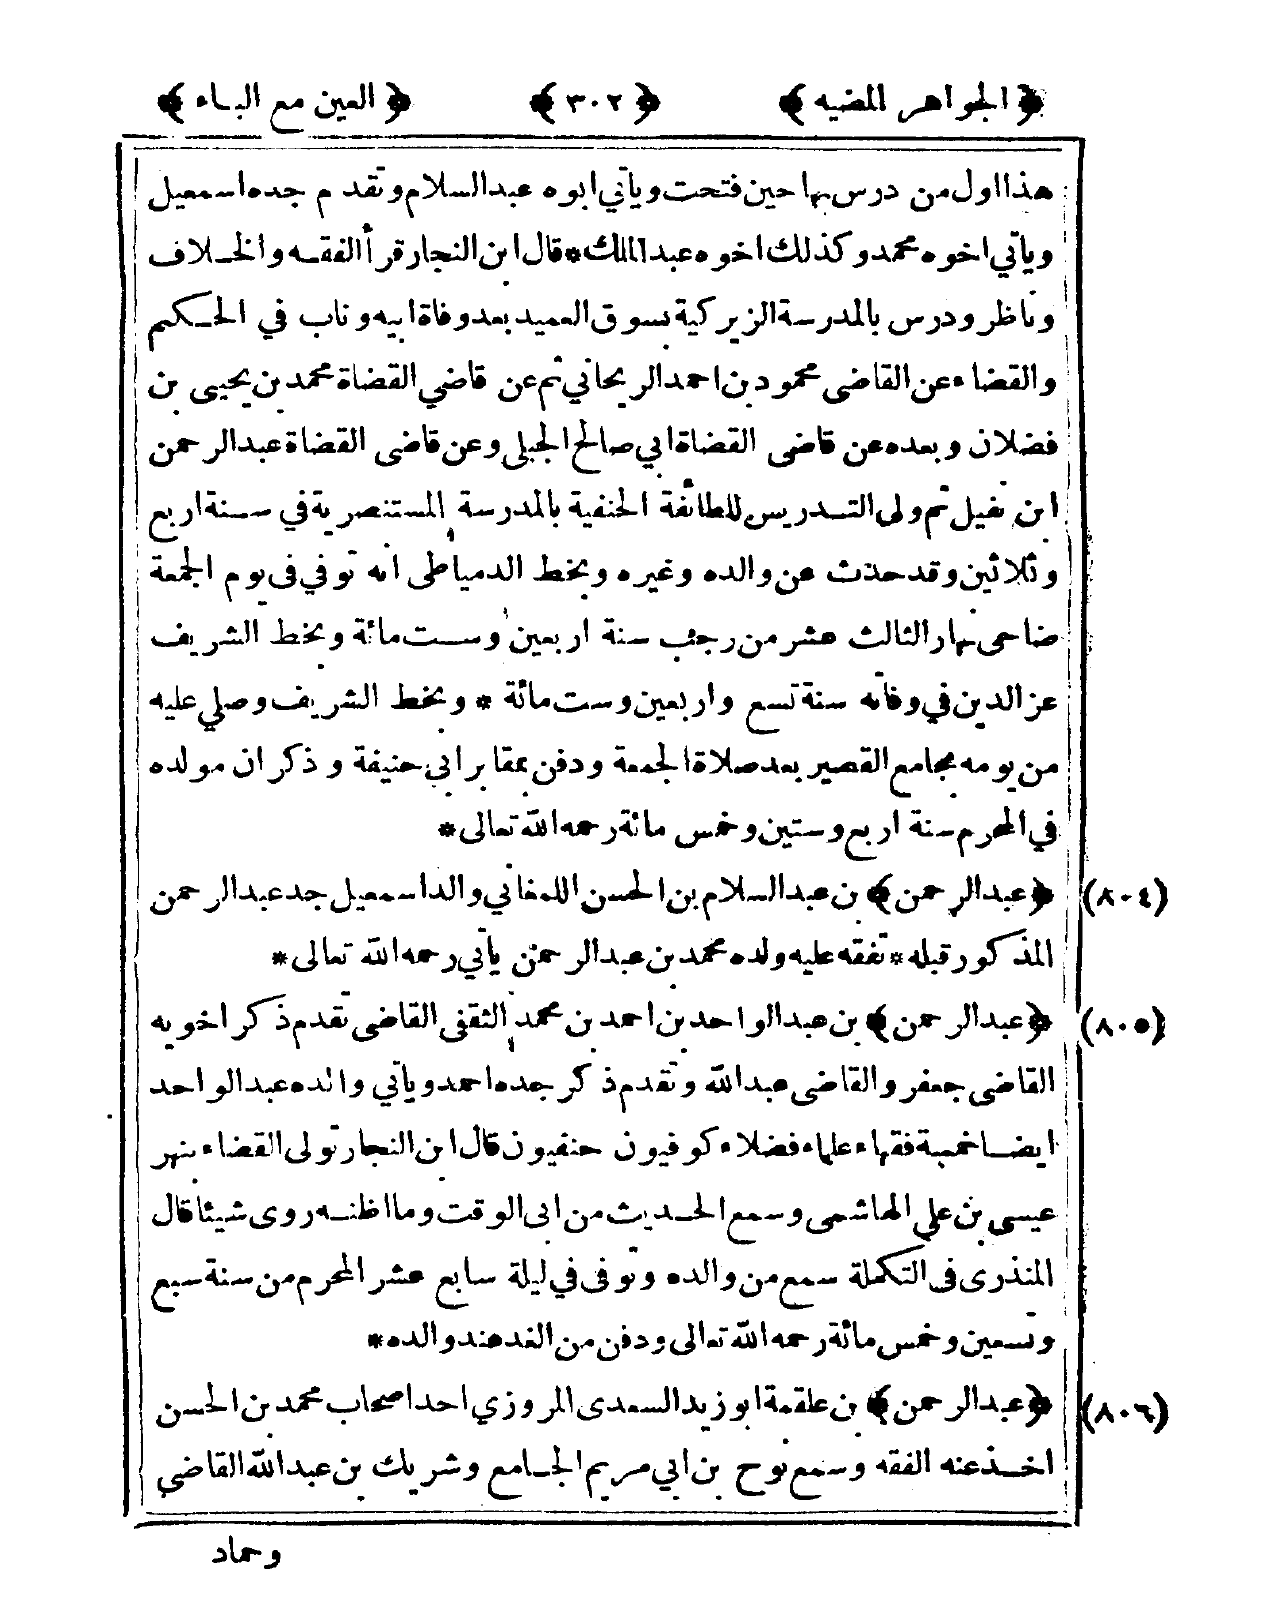 ﴿ الجواهر المضيه ﴾ ﴿ ٣٠٢ ﴾ ﴿ العين مع الباء ﴾
هذا اول من درس بها حين فتحت و يأتي ابوه عبد السلام و تقدم جده اسمعيل
و يأتي اخوه محمد و كذلك اخوه عبد الملك * قال ابن النجار قرأ الفقه والخلاف
و ناظر و درس بالمدرسة الزيركية بسوق العميد بعد وفاة ابيه و ناب في الحكم
والقضاء عن القاضى محمود بن احمد الريحاني ثم عن قاضي القضاة محمد بن يحيى بن
فضلان و بعده عن قاضى القضاة ابي صالح الجبلى و عن قاضى القضاة عبد الرحمن
ابن نفيل ثم ولى التدريس للطائفة الحنفية بالمدرسة المستنصرية في سنة اربع
و ثلاثين و قد حدث عن والده و غيره و بخط الدمياطى انه توفي فى يوم الجمعة
ضاحى نهار الثالث عشر من رجب سنة اربعين و ست مائة و بخط الشريف
عز الدين في وفاته سنة تسع و اربعين و ست مائة * و بخط الشريف و صلي عليه
من يومه بجامع القصير بعد صلاة الجمعة و دفن بمقابر ابي حنيفة و ذكر ان مولده
في المحرم سنة اربع و ستين و خمس مائة رحمه الله تعالى *
(٨٠٤) ﴿ عبد الرحمن ﴾ بن عبد السلام بن الحسن اللمغاني والد اسمعيل جد عبد الرحمن
المذكور قبله * تفقه عليه ولده محمد بن عبد الرحمن يأتي رحمه الله تعالى *
(٨٠٥) ﴿ عبد الرحمن ﴾ بن عبد الواحد بن احمد بن محمد الثقفى القاضى تقدم ذكر اخويه
القاضى جعفر والقاضى عبد الله و تقدم ذكر جده احمد و يأتي والده عبد الواحد
ايضا خمسة فقهاء علماء فضلاء كوفيون حنفيون قال ابن النجار تولى القضاء بنهر
عيسى بن علي الهاشمى و سمع الحديث من ابى الوقت و ما اظنه روى شيئا قال
المنذرى فى التكملة سمع من والده و توفى في ليلة سابع عشر المحرم من سنة سبع
و تسعين و خمس مائة رحمه الله تعالى و دفن من الغد عند والده *
(٨٠٦) ﴿ عبد الرحمن ﴾ بن علقمة ابو زيد السعدى المروزي احد اصحاب محمد بن الحسن
اخذ عنه الفقه و سمع نوح بن ابي مريم الجامع و شريك بن عبد الله القاضي
و حماد